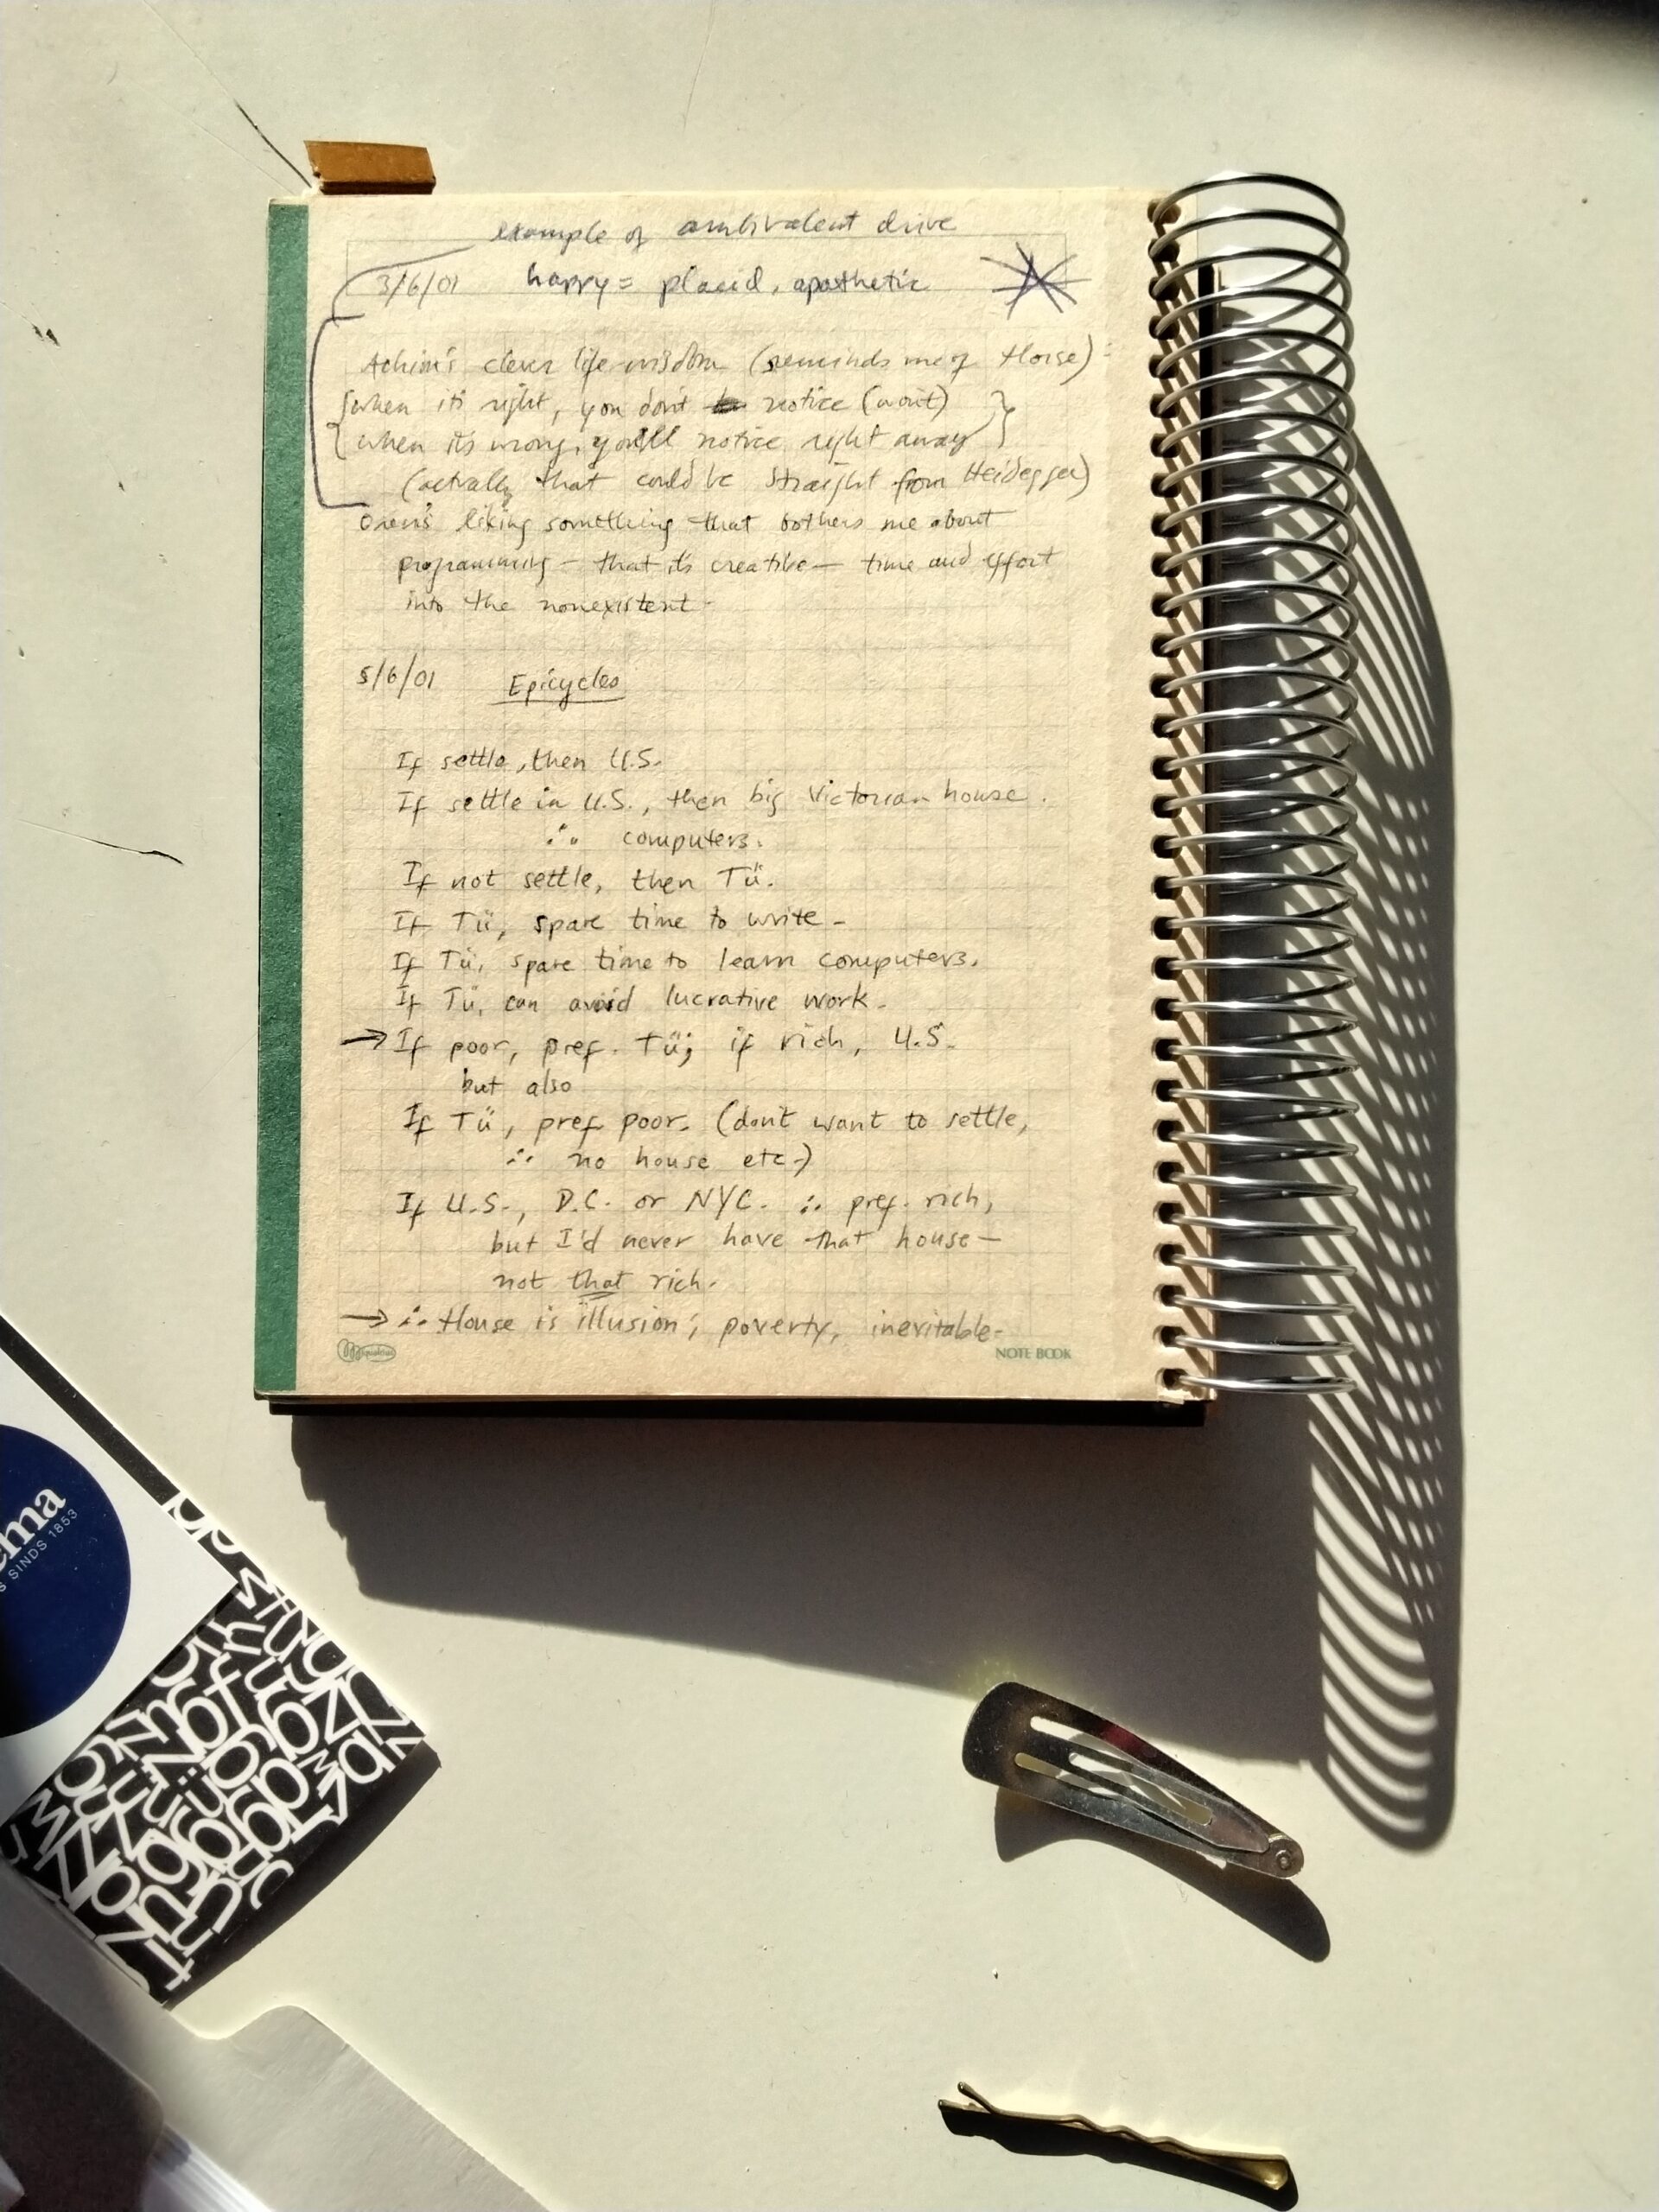 example of ambivalent drive
3/6/01 happy = placid, apathetic
Achim's clever life-wisdom (reminds me of Horse):
{when it's right, you don't notice (won't)}
{when it's wrong, you'll notice right away}
(actually that could be straight from Heidegger)
Oren's liking something that bothers me about
programming — that it's creative — time and effort
into the nonexistent.
5/6/01 Epicycles
If settle, then U.S.
If settle in U.S., then big Victorian house.
∴ computers.
If not settle, then Tü.
If Tü, spare time to write.
If Tü, spare time to learn computers.
If Tü, can avoid lucrative work.
→ If poor, pref. Tü; if rich, U.S.
but also
If Tü, pref poor. (don't want to settle,
∴ no house etc.)
If U.S., D.C. or NYC. ∴ pref. rich,
but I'd never have that house—
not that rich.
→ ∴ House is illusion; poverty, inevitable.
NOTE BOOK
SINDS 1853